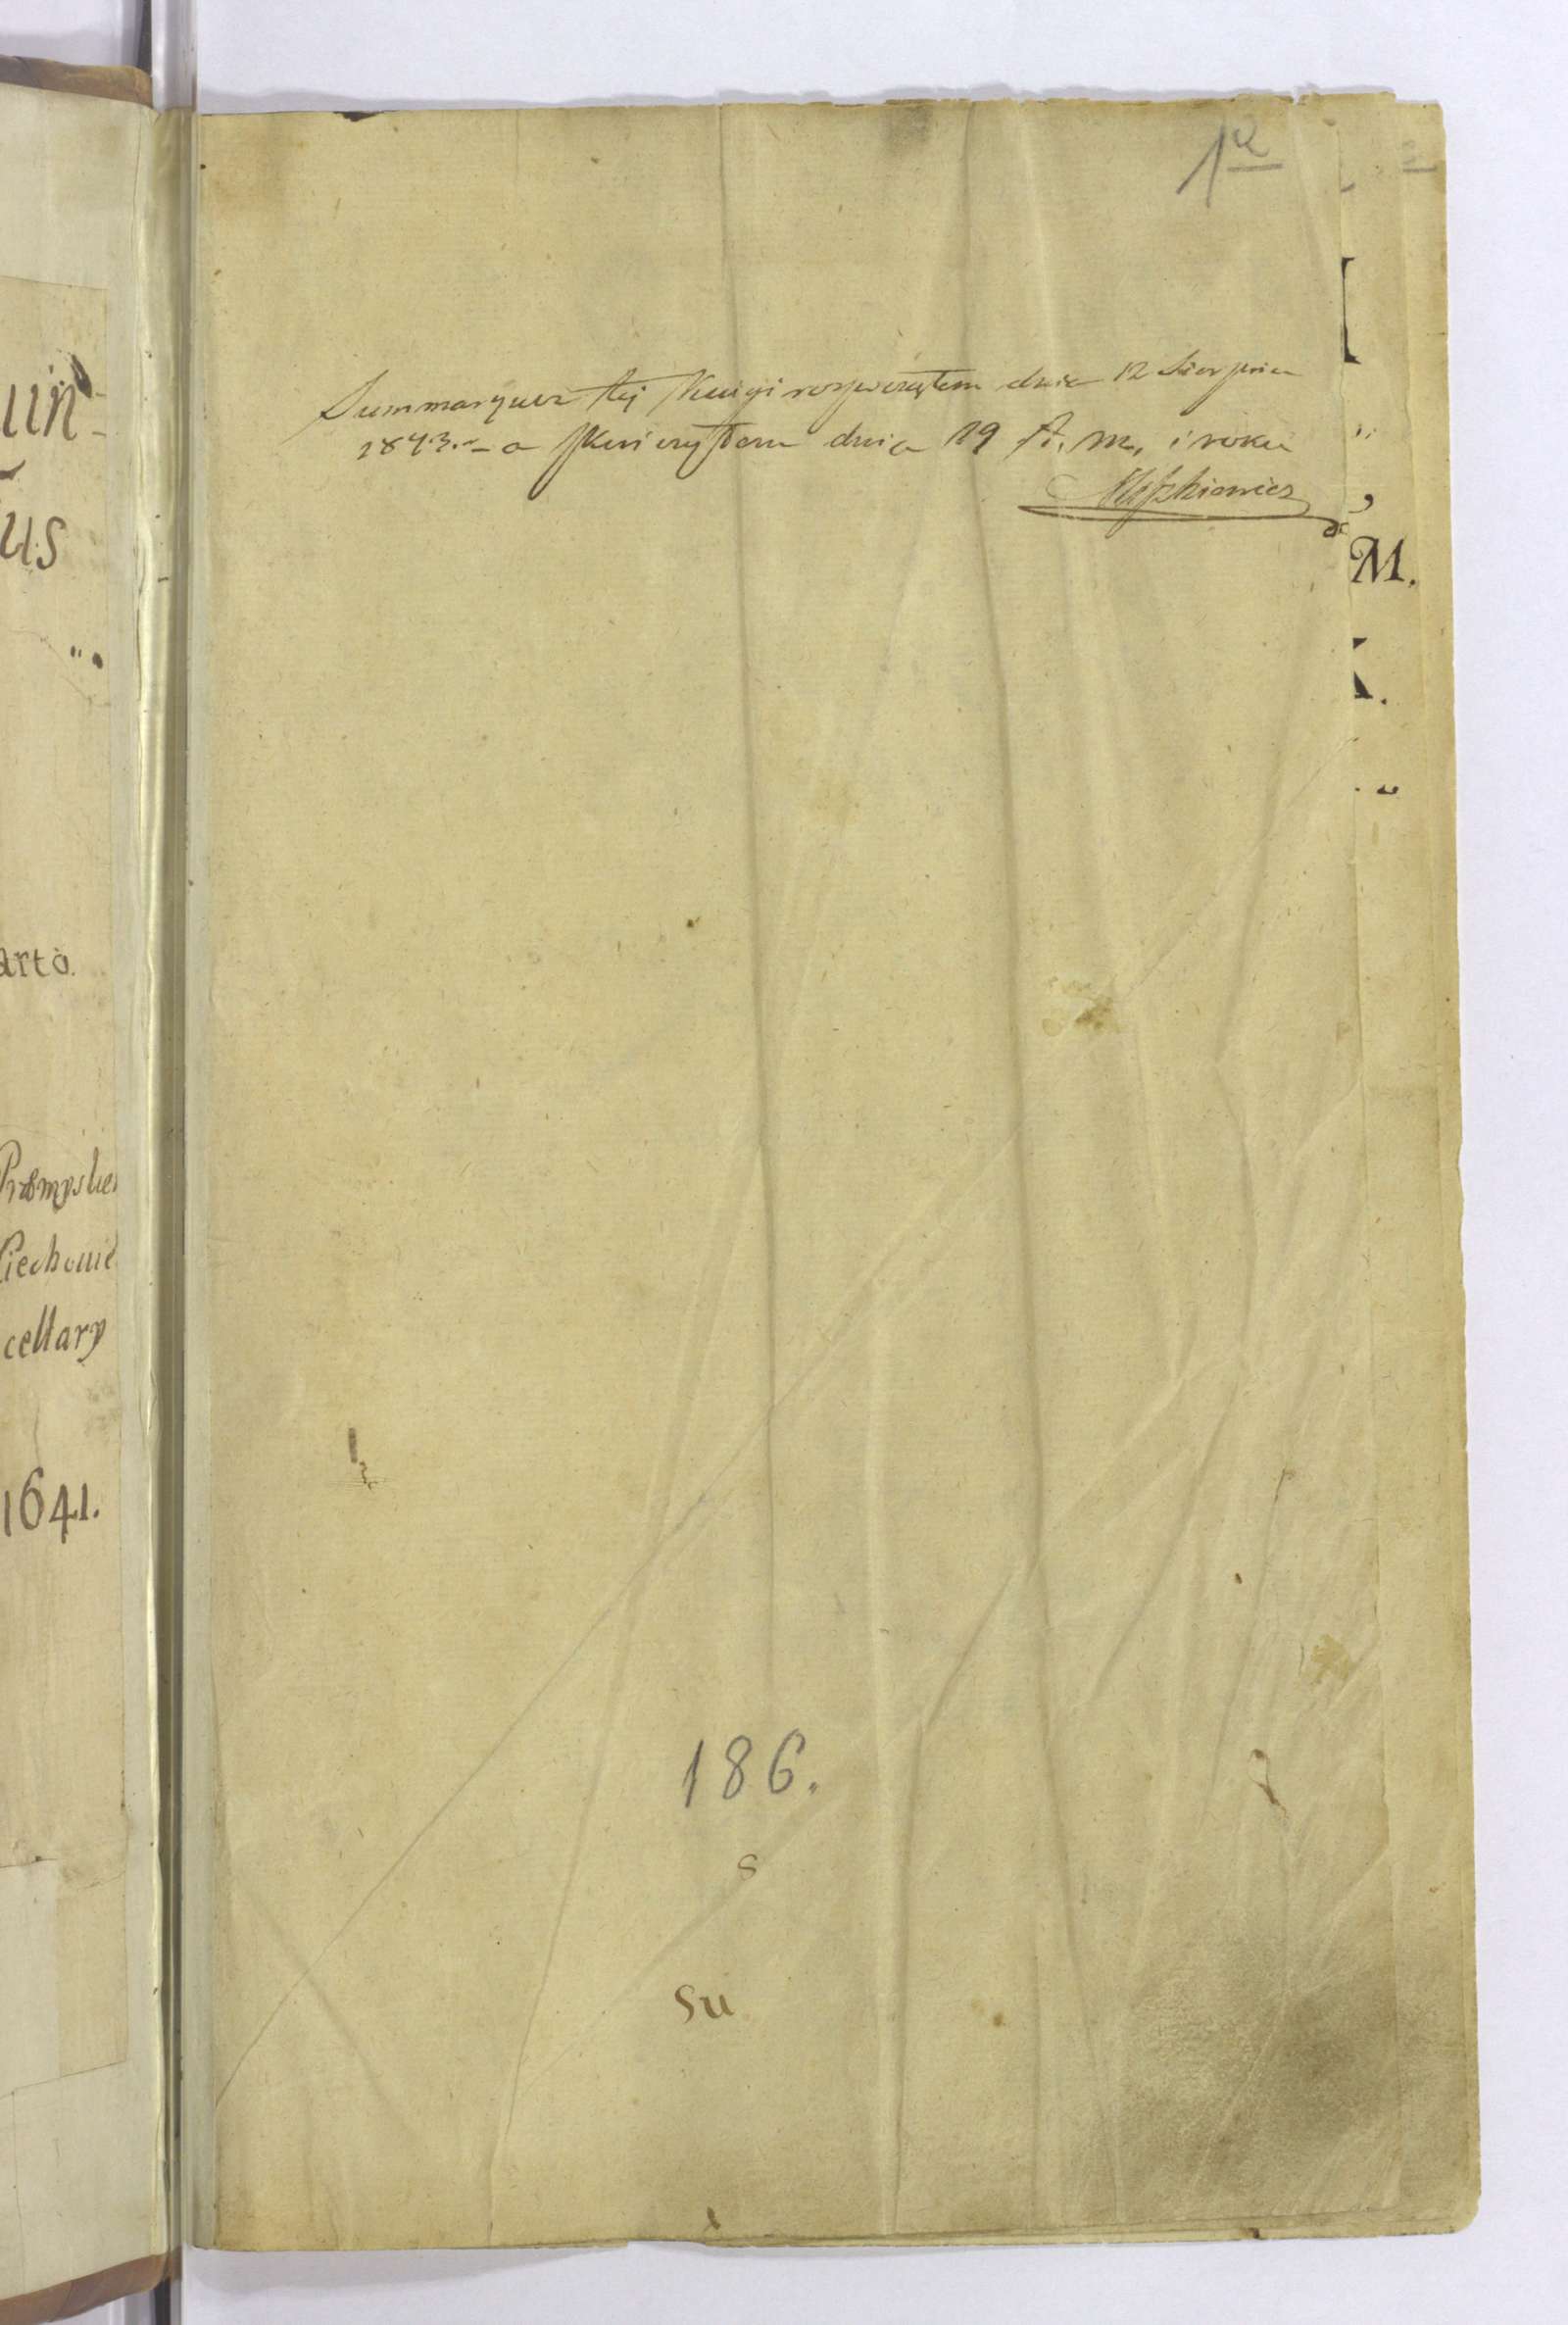 uin-
us
arto.
cellary
1641.
1a
Summaryusz tej Ksiugi rozpocząłem dnia 12 Sierpnia
1843.- a skończyłem dnia 19 t. m. i roku
M.
186.
s
su